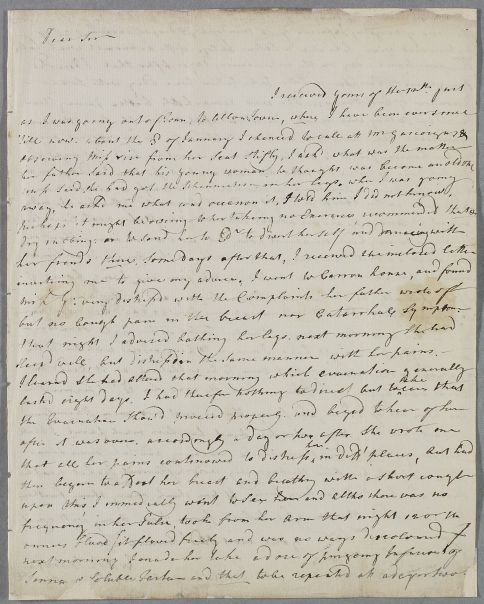 Dear Sir
I received yours of the 10th just
as I was going out of Town to where I have been ever since
till now. about the 8th of January I chanced to call at Mr Gascoigne's &
observing Miss rise from her Seat stiffly, I ask'd what was the matter
her father said that his young woman he thought was become an old one,
Miss said she had got the Rheumatism in her legs, when I was going
away he asked me what could occasion it, I told him I did not know,
perhaps it might be owing to her taking no Exercise recommended that
dry rubbing, or to send her to Edr to divert herself and dance with
her friends there, Some days after that, I received the inclosed letter
inviting me to give my advice, I went to Carron house, and found
Miss G: very distress'd with the Complaints her father wrote off
but no Cough pain in the breast nor Catarrhal Symptom
that night I advised bathing her legs, next morning She had
Slept well, but distressed in the same manner with her pains.
I learned She had that morning which evacuation generally
lasted eight days. I had therefor nothing to direct but to take care that
the Evacuation should proceed properly. and beged to hear of her
after it was over. accordingly a day or two after She wrote me
that all her pains continowed to distress her in difft places, and had
then begun to affect her breast and breathing with a short cough
upon this I immedially went to see her and altho there was no
frequency in her Pulse took from her Arm that night 12 or 14
ounces Blood, it flowed freely and was no ways discoloured
next morning I made her take a dose of purging Infusion of
Senna & Soluble Tartar and that to be repeated at a day or two's